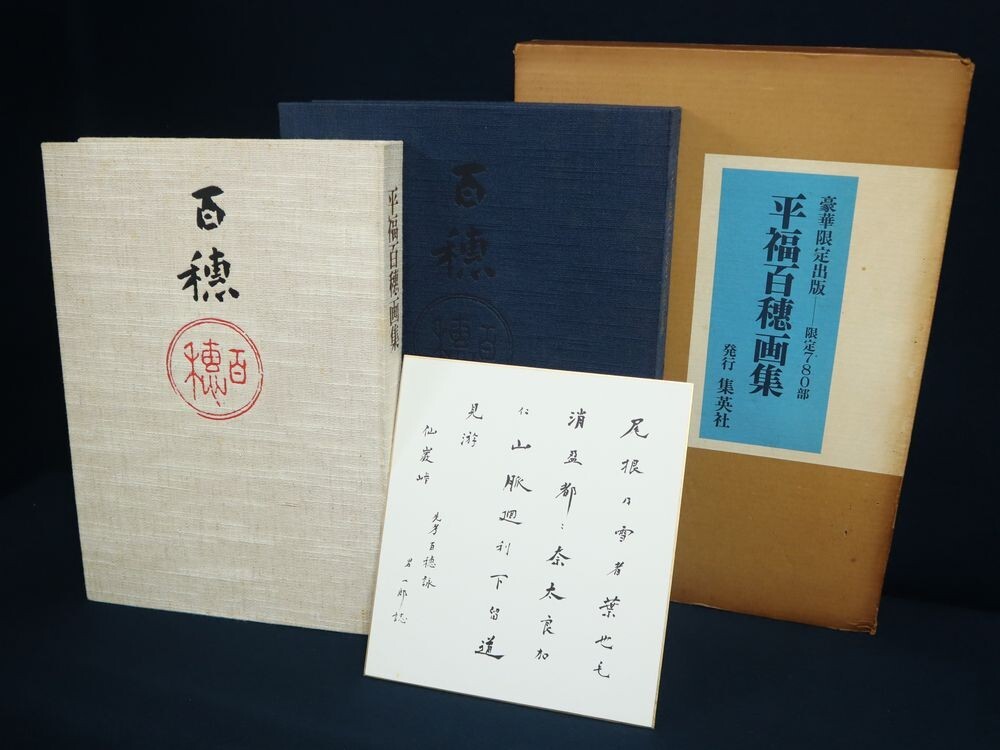 百穂
百穂
平福百穂画集
百穂
百穂
豪華限定出版――限定780部
平福百穂画集
発行 集英社
尾根乃雪者葉也毛
消盈都〻奈太良加
仁山脈廻利下留道
見游
仙巌峠
先考百穂詠
一郎誌